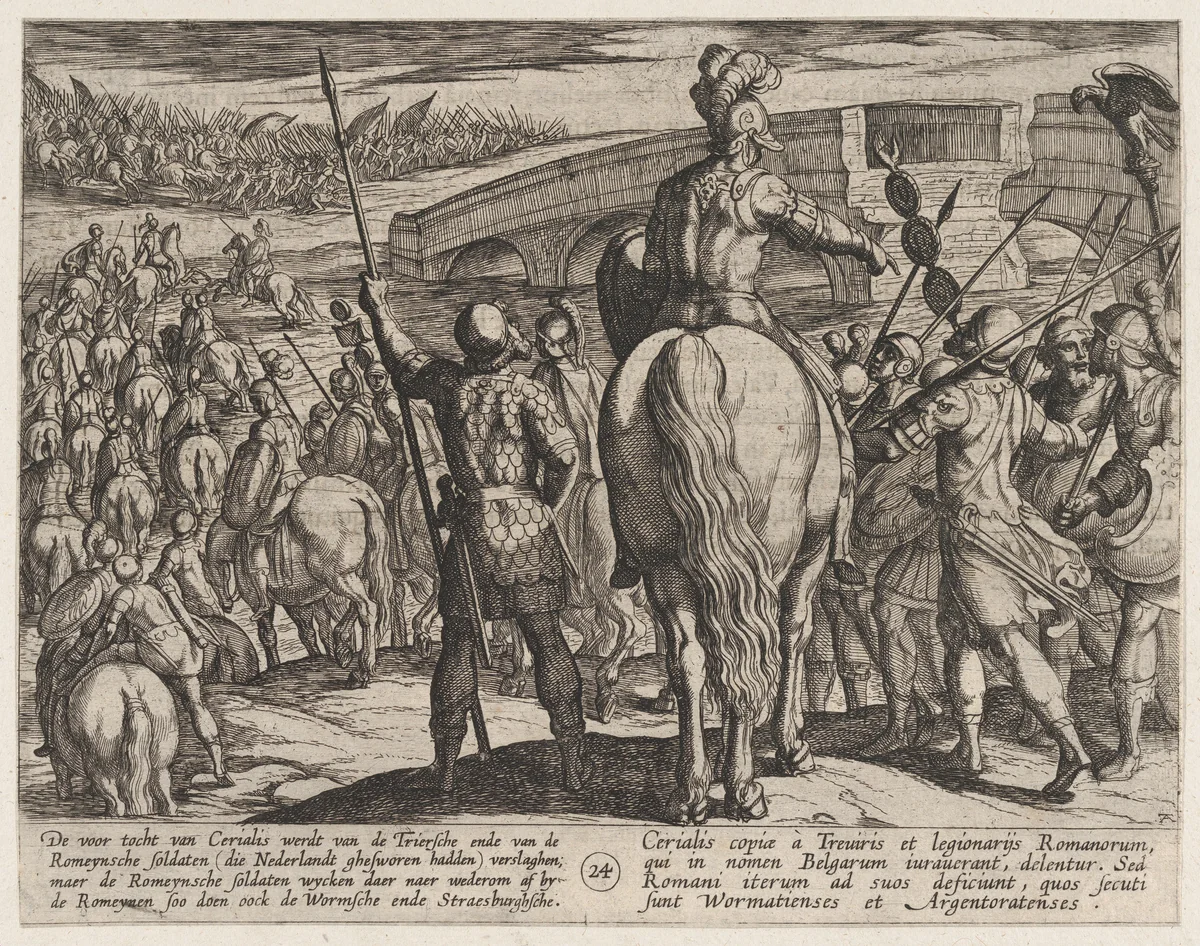 De voor tocht van Cerialis werdt van de Triersche ende van de
Romeynsche soldaten (die Nederlandt ghesworen hadden) verslaghen;
maer de Romeynsche soldaten wycken daer naer wederom af by
de Romeynen soo doen oock de Wormsche ende Straesburghsche.
24
Cerialis copiæ à Treuiris et legionarijs Romanorum,
qui in nomen Belgarum iurauerant, delentur. Sed
Romani iterum ad suos deficiunt, quos secuti
sunt Wormatienses et Argentoratenses.